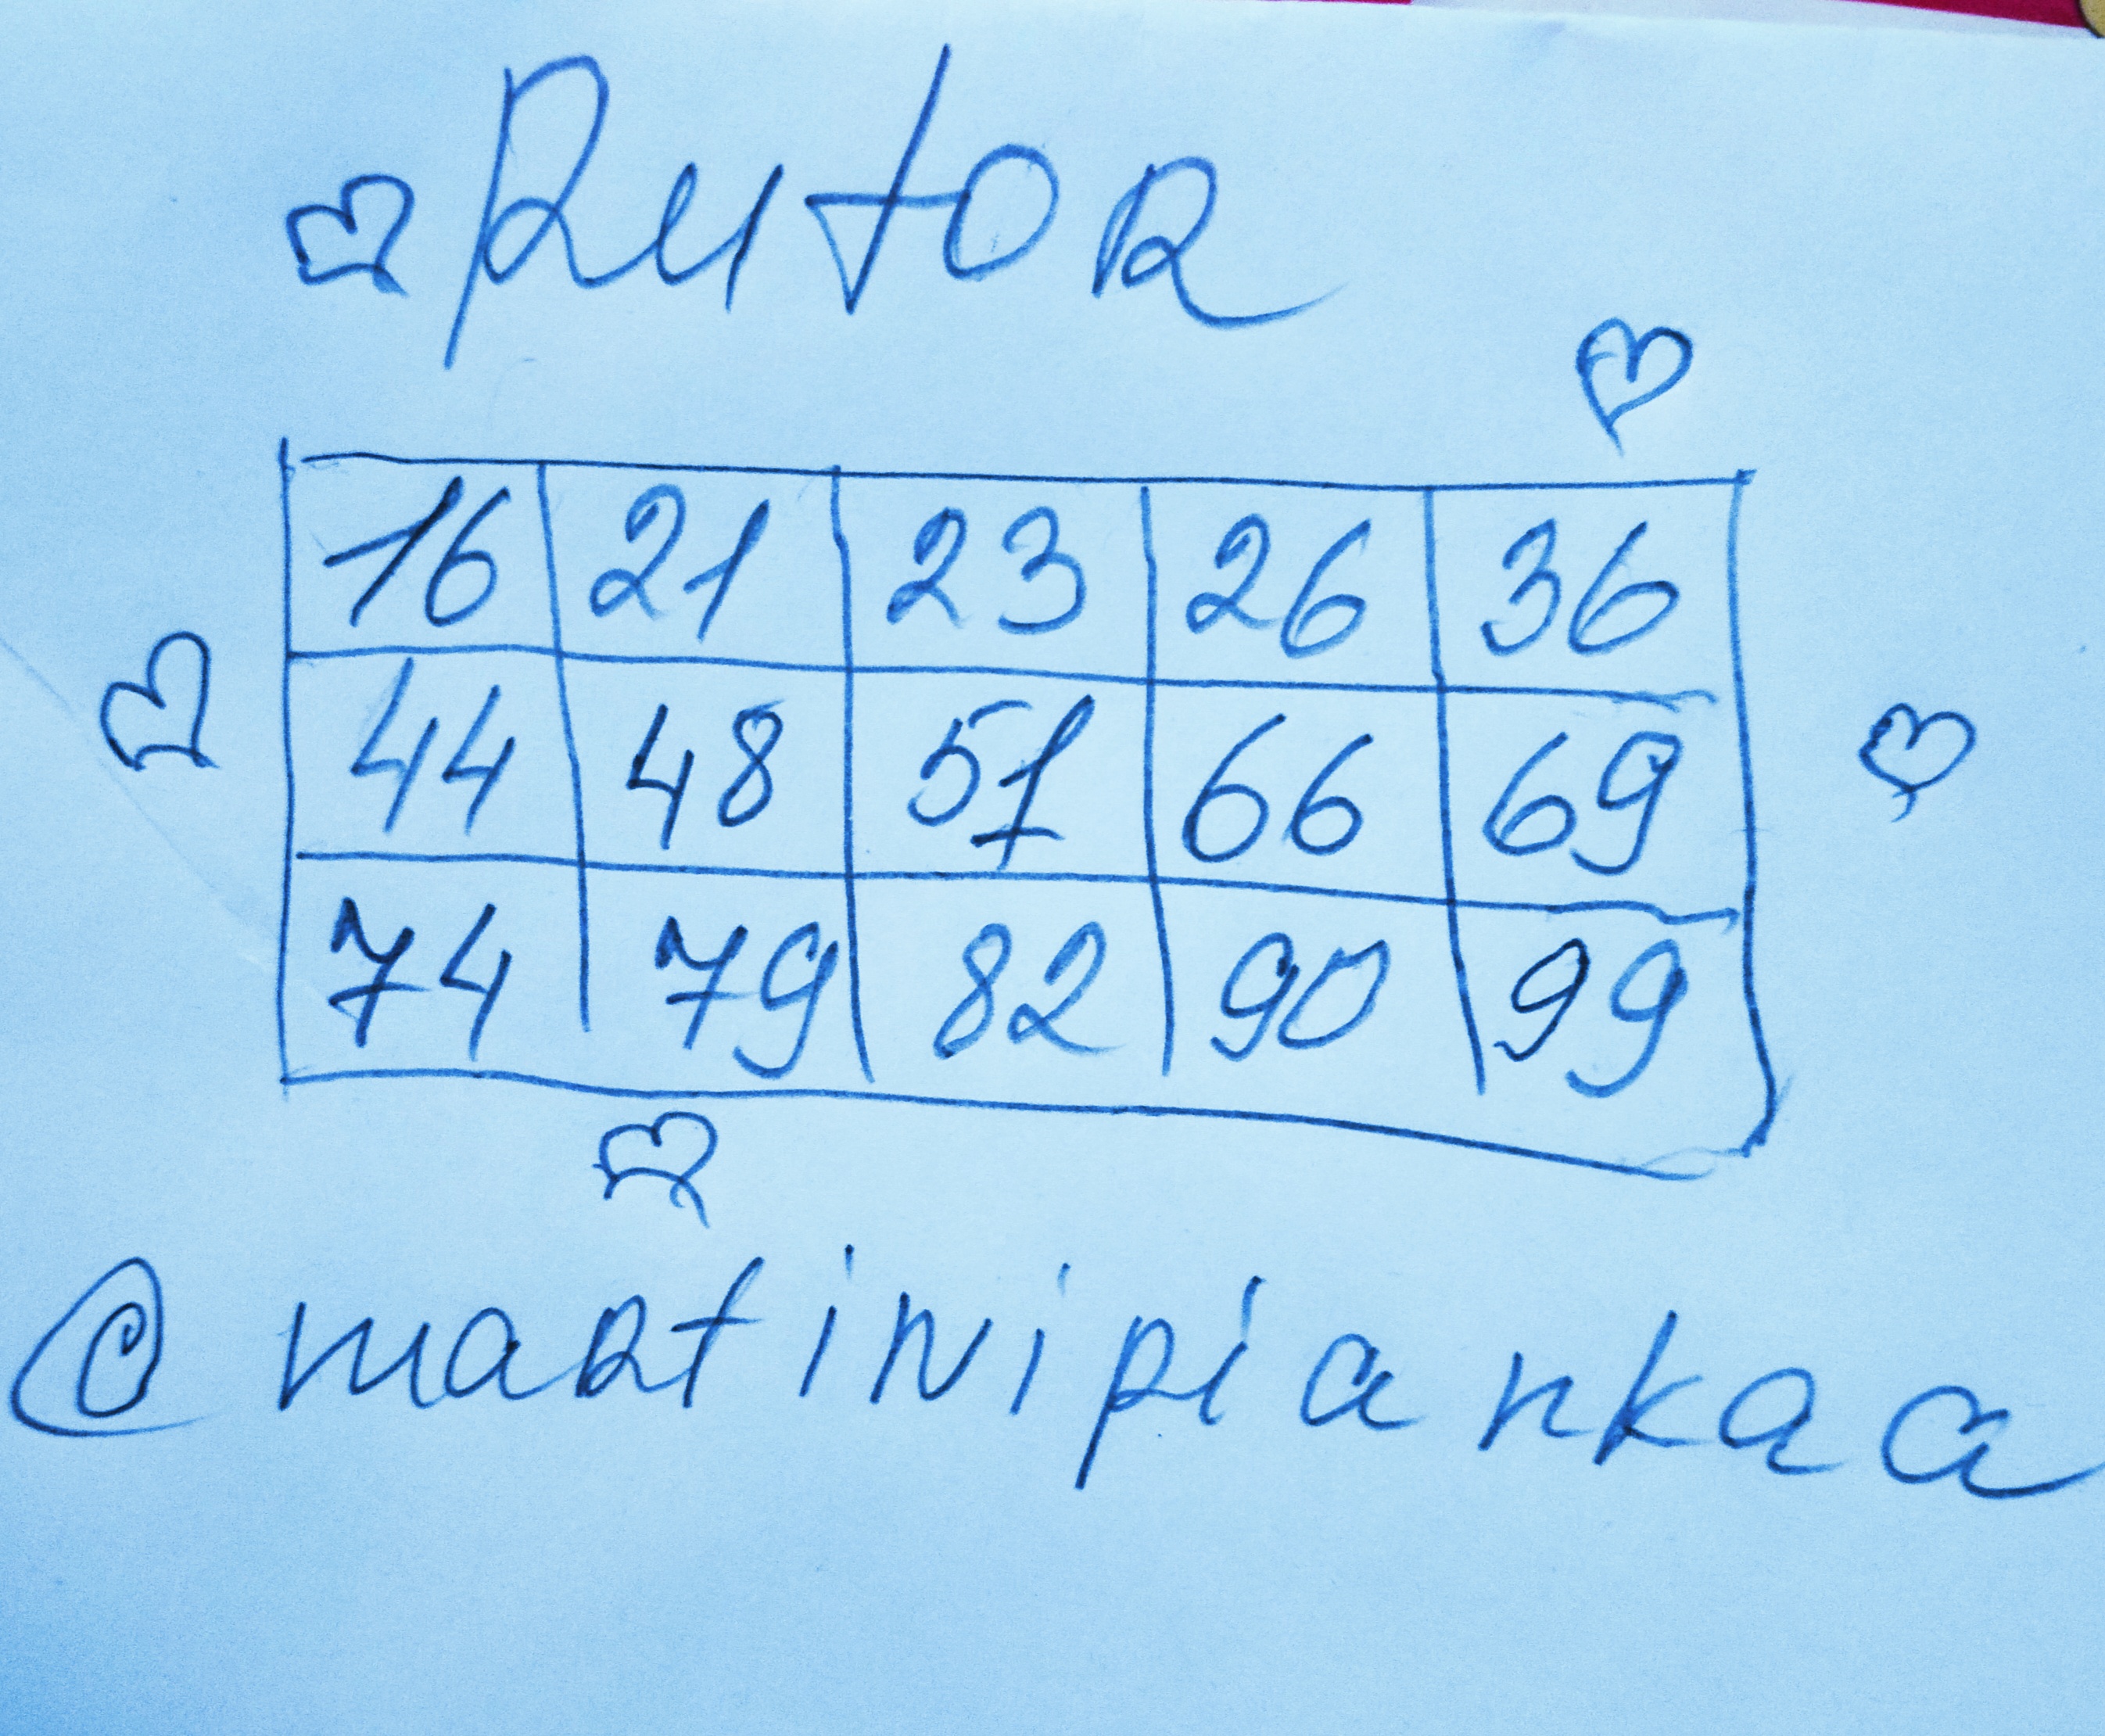 RutoR
16 21 23 26 36
44 48 51 66 69
74 79 82 90 99
@martinipiankaa